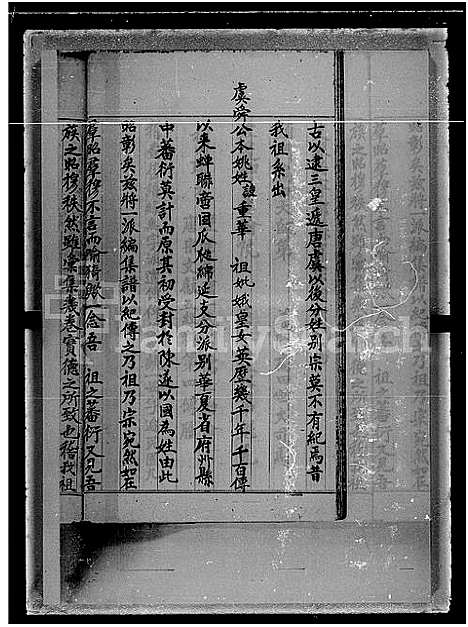 古以逮三皇遞唐虞以後分姓別宗莫不有紀焉昔
我祖系出
虞舜公本姚姓諱重華 祖妣娥皇女英歷幾千年千百傳
以來蟬聯帝國瓜瓞綿延支分派別華夏省府州縣
中蕃衍莫計而原其初受封於陳遂以國為姓由此
昭彰矣茲將一派編集譜以紀傳之乃祖乃宗宛然如在
昭穆不言而喻緝歟一念吾 祖之蕃衍又見吾
族之昭穆秩然雖彙集卷實德之所致也稽我祖
FamilySearch